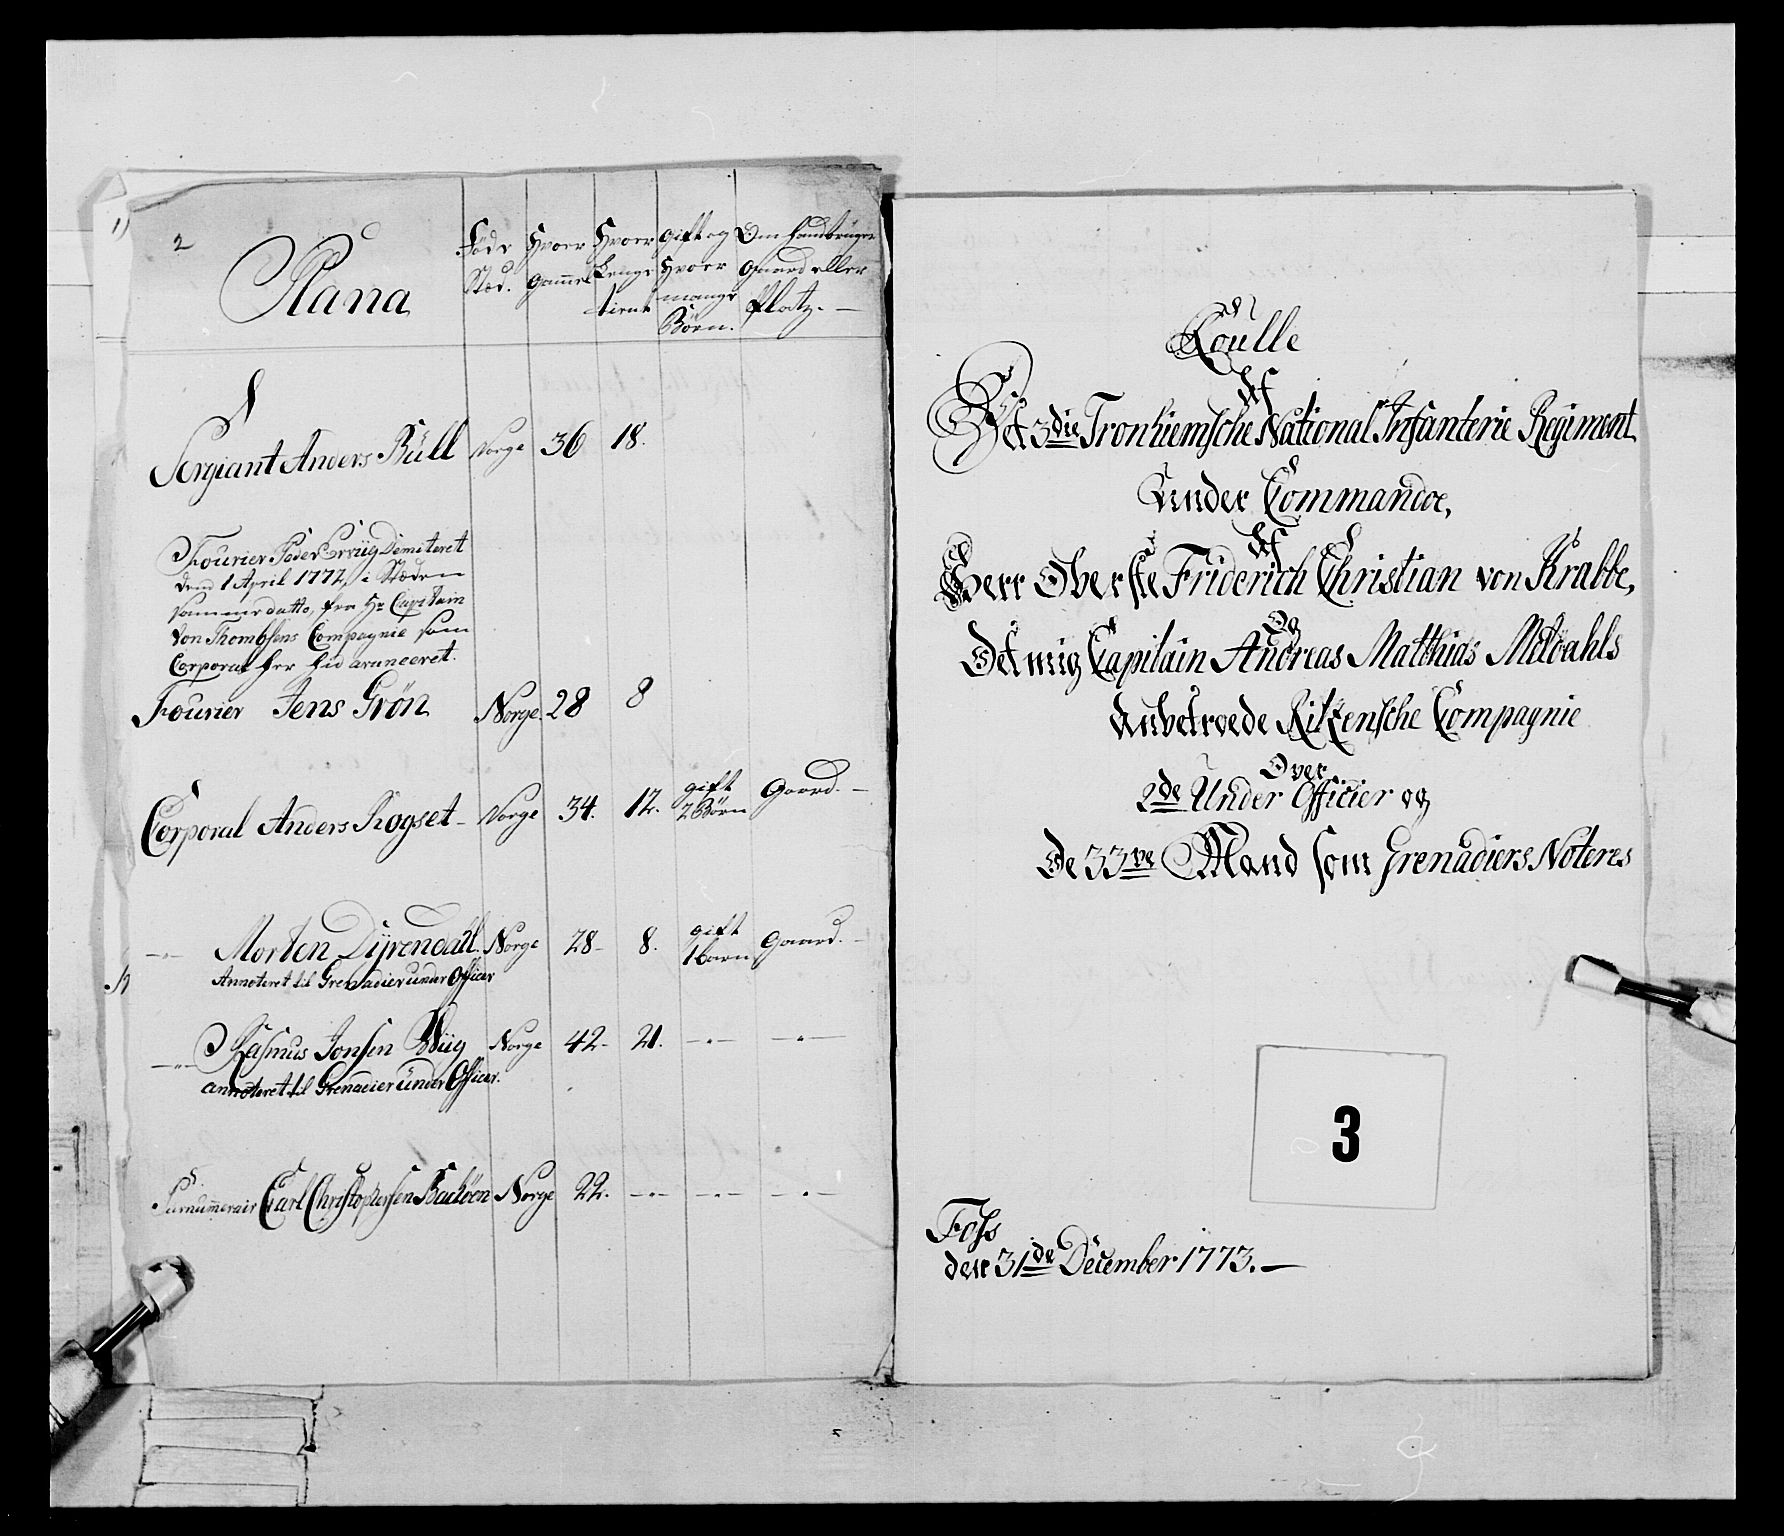 2
Nana
Föde Stæd.
Hvoer Gammel
Hvoer Lenge tient
Gift og Hvoer mange Börn.
Om hand bruger Gaard eller Platz. —
Sergiant Anders Büll Norge 36 18.
Fourier Peder Demiteret
den 1 April 1772, i Stæden
samme datto, fra Hr Capitain
von Thombsens Compagnie som
Corporal her hid avanceret.
Fourier Jens Grön Norge. 28 8
Corporal Anders Rogset - Norge 34. 12. gift 2 Börn Gaard. —
—"— Morten Dÿrendahl Norge 28- 8. gift 1 barn Gaard. —
Annoteret til Grenadier under Officer
—"— Rasmus Jonsen Wiig Norge 42- 21. —"— —"—
annoteret til Grenadier ünder Officer.
Surnummerair Carl Christophersen Norge 22. —"— —"— —"—
Roulle
Af
Det 3die Tronhiemsche National Infanterie Regiment
Under Commando,
Af
Herr Oberste Friderich Christian von Krabbe,
Og
Det mig Capitain Andreas Matthias Moldahls
Anbetroede Ritzensche Compagnie
Over
2de Under Officier og
De 33ve Mand som Grenadiers Noteres
3
Foss
den 31de December 1773. —